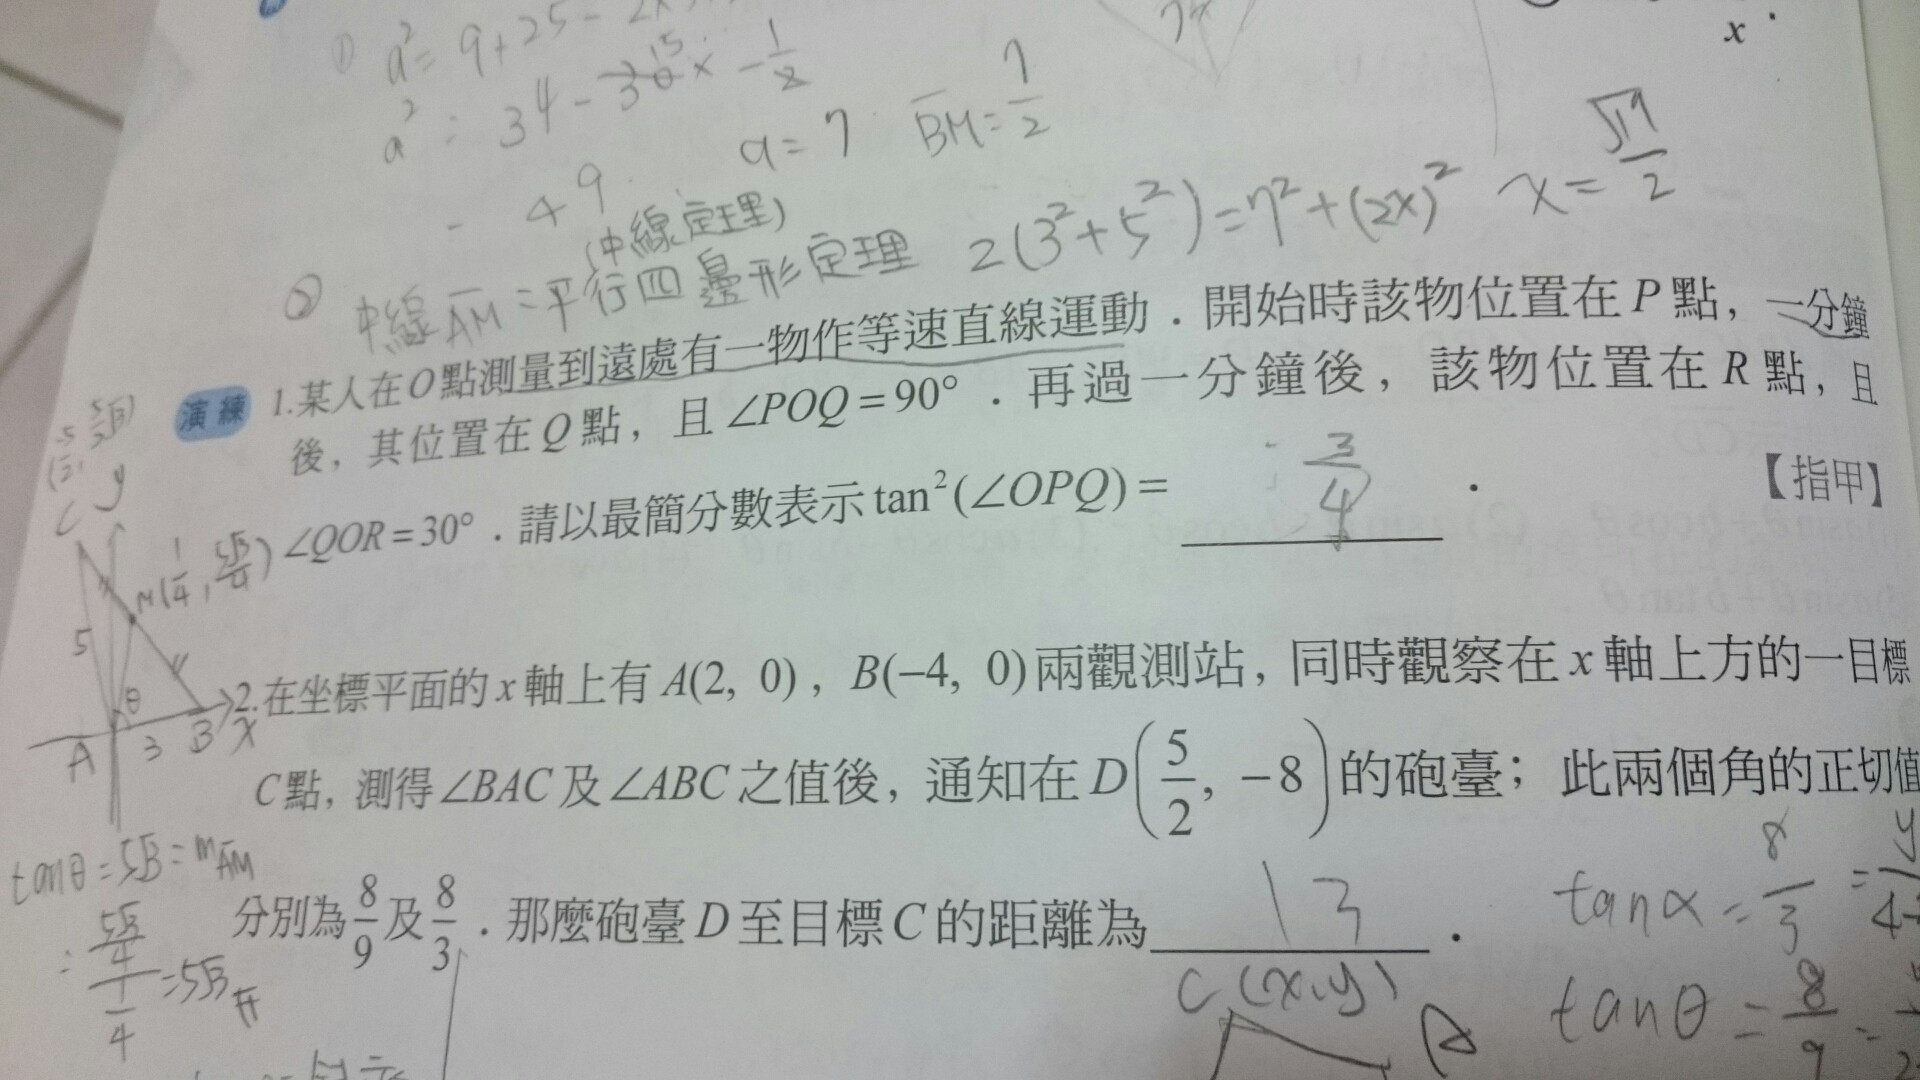 ① a²= 9+25-
a² = 34-30 15 × -1/2
= 49 a=7 BM=7/2
(中線定理)
② 中線AM=平行四邊形定理 2(3²+5²)=7²+(2x)² x=√19/2
x
演練 1.某人在O點測量到遠處有一物作等速直線運動．開始時該物位置在P點，一分鐘
後，其位置在Q點，且∠POQ=90°．再過一分鐘後，該物位置在R點，且
∠QOR=30°．請以最簡分數表示tan²(∠OPQ)= 3/4 ． 【指甲】
C y
M(1/4, 5√3/4)
5
θ
A 3 B x
2.在坐標平面的x軸上有A(2, 0)，B(-4, 0)兩觀測站，同時觀察在x軸上方的一目標
C點，測得∠BAC及∠ABC之值後，通知在D(5/2, -8)的砲臺；此兩個角的正切值
分別為8/9及8/3．那麼砲臺D至目標C的距離為 13 ．
tanθ=5√3=mAM
= 5√3/4 / 1/4 =5√3
tanα=8/3 = y
C(x,y)
tanθ = 8/9 =